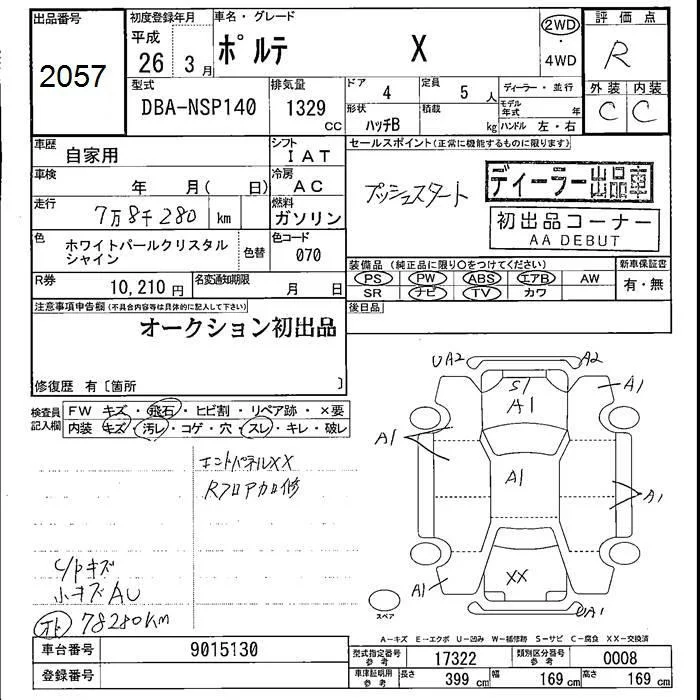 出品番号
2057
初度登録年月
平成
26 3 月
車名・グレード
ポルテ X
2WD
・
4WD
評価点
R
外装 内装
C C
型式
DBA-NSP140
排気量
1329
CC
ドア
4
定員
5 人
形状
ハッチB
積載
kg
ディーラー・並行
モデル
年式 年
ハンドル 左・右
車歴
自家用
シフト
IAT
車検
年 月( 日)
冷房
AC
走行
7万8千280 km
燃料
ガソリン
色
ホワイトパールクリスタル
シャイン
色替
色コード
070
R券
10,210 円
名変通知期限
月 日
セールスポイント(正常に機能するものに限ります)
プッシュスタート
ディーラー出品車
初出品コーナー
AA DEBUT
装備品 (純正品に限り○をつけてください)
PS PW ABS エアB AW
SR ナビ TV カワ
新車保証書
有・無
後日品
注意事項申告欄(不具合内容等は具体的に記入して下さい)
オークション初出品
修復歴 有〔箇所 〕
検査員
記入欄
FW キズ・飛石・ヒビ割・リペア跡・×要
内装 キズ・汚レ・コゲ・穴・スレ・キレ・破レ
エンドパネルXX
Rフロアカロ修
C/Pキズ
小キズAU
オド 78280KM
UA2
A2
S1
A1
A1
A1
A1
A1
A1
XX
UA1
スペア
A-キズ E-エクボ U-凹み W-補修跡 S-サビ C-腐食 XX-交換済
車台番号
9015130
登録番号
型式指定番号
参考
17322
類別区分番号
参考
0008
車庫証明用
参考
長さ
399 cm
幅
169 cm
高さ
169 cm